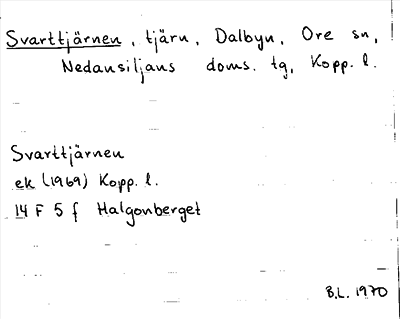 Svarttjärnen, tjärn, Dalbyn, Ore sn,
Nedansiljans doms. tg, Kopp. l.
Svarttjärnen
ek (1969) Kopp. l.
14 F 5 f Halgonberget
B.L. 1970